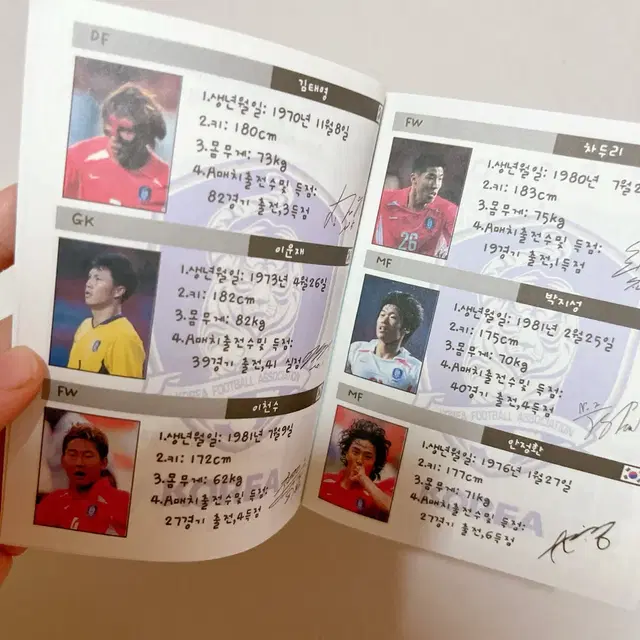 DF
김태영
1.생년월일: 1970년 11월8일
2.키: 180cm
3.몸무게: 73kg
4.A매치출전수및 득점:
82경기 출전,3득점
GK
이운재
1.생년월일: 1973년 4월26일
2.키: 182cm
3.몸무게: 82kg
4.A매치출전수및 득점:
39경기 출전,41 실점
FW
이천수
1.생년월일: 1981년 7월9일
2.키: 172cm
3.몸무게: 62kg
4.A매치출전수및 득점:
27경기 출전,4득점
KOREA FOOTBALL ASSOCIATION
KOREA
FW
차두리
1.생년월일: 1980년 7월
2.키: 183cm
3.몸무게: 75kg
4.A매치출전수및 득점:
19경기 출전,1득점
26
MF
박지성
1.생년월일: 1981년 2월25일
2.키: 175cm
3.몸무게: 70kg
4.A매치출전수및 득점:
40경기 출전,4득점
MF
안정환
1.생년월일: 1976년 1월27일
2.키: 177cm
3.몸무게: 71kg
4.A매치출전수및 득점:
27경기 출전,6득점
KOREA FOOTBALL ASSOCIATION
KOREA